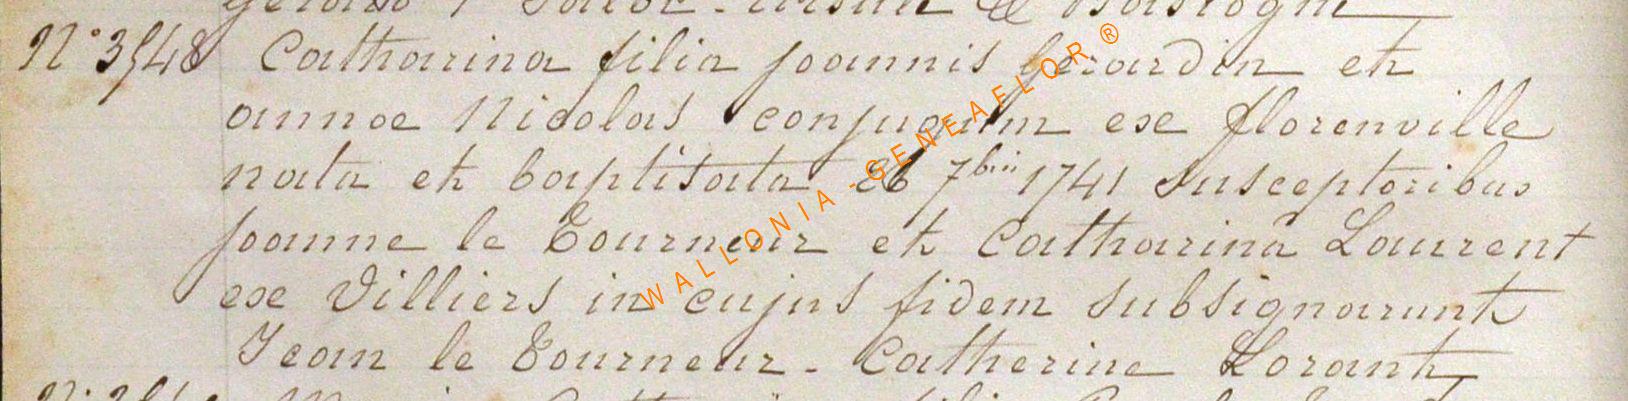 N° 3548 Catharina filia joannis Gerardin et
annae Nicolas conjugum ex florenville
nata et baptisata 26 7bris 1741 susceptoribus
joanne le Tourneur et Catharinâ Laurent
ex Villiers in cujus fidem subsignarunt
Jean le Tourneur - Catherine Lorant
WALLONIA - GENEAFLOR ®